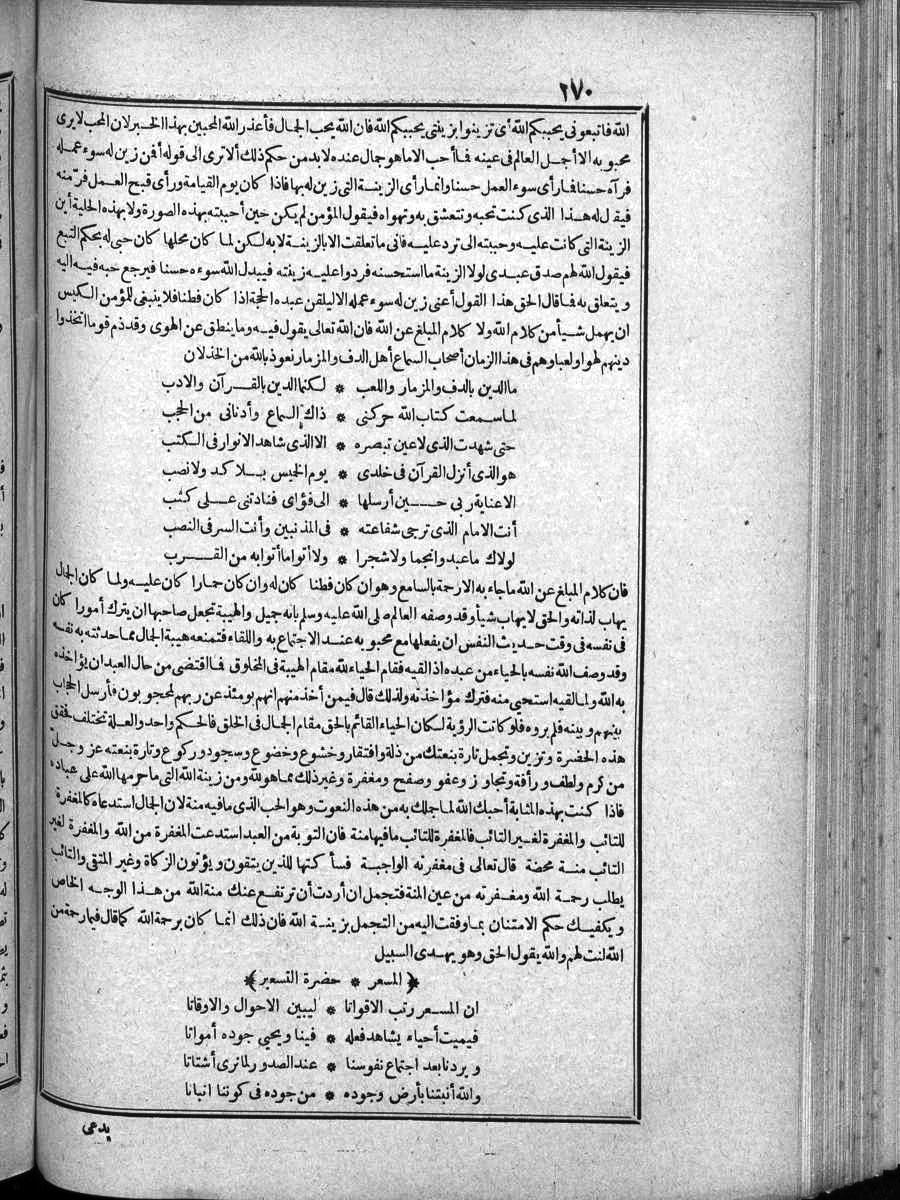 ٢٧٠
الله فاتبعوني يحببكم الله أي تزينوا بزينتي يحببكم الله فان الله يحب الجمال فأعذر الله المحبين بهذا الخبر لان المحب لا يرى
محبوبه الا أجمل العالم في عينه فما أحب الا ما هو جمال عنده لا بد من حكم ذلك ألا ترى الى قوله أفمن زين له سوء عمله
فرآه حسنا فما رأى سوء العمل حسنا وانما رأى الزينة التي زين له بها فاذا كان يوم القيامة ورأى قبح العمل فر منه
فيقال له هذا الذي كنت تحبه وتتعشق به وتهواه فيقول المؤمن لم يكن حين أحببته بهذه الصورة ولا بهذه الحلية أين
الزينة التي كانت عليه وحببته الى ترد عليه فاني ما تعلقت الا بالزينة لا به لكن لما كان محلها كان حبي له بحكم التبع
فيقول الله لهم صدق عبدي لولا الزينة ما استحسنه فردوا عليه زينته فيبدل الله سوءه حسنا فيرجع حبه فيه اليه
ويتعلق به فما قال الحق هذا القول أعني زين له سوء عمله الا ليلقن عبده الحجة اذا كان فطنا فلا ينبغي للمؤمن الكيس
ان يهمل شيأ من كلام الله ولا كلام المبلغ عن الله فان الله تعالى يقول فيه وما ينطق عن الهوى وقد ذم قوما اتخذوا
دينهم لهوا ولعبا وهم في هذا الزمان أصحاب السماع أهل الدف والمزمار نعوذ بالله من الخذلان
ما الدين بالدف والمزمار واللعب * لكنما الدين بالقرآن والادب
لما سمعت كتاب الله حركني * ذاك السماع وأدناني من الحجب
حتى شهدت الذي لا عين تبصره * الا الذي شاهد الانوار في الكتب
هو الذي أنزل القرآن في خلدي * يوم الخميس بلا كد ولا نصب
الا عناية ربي حين أرسلها * الى فؤاي فنادتني على كثب
أنت الامام الذي ترجى شفاعته * في المذنبين وأنت السر في النصب
لولاك ما عبدوا نجما ولا شجرا * ولا أتوا ما أتوا به من القرب
فان كلام المبلغ عن الله ما جاء به الا رحمة بالسامع وهو ان كان فطنا كان له وان كان حمارا كان عليه ولما كان الجمال
يهاب لذاته والحق لا يهاب شيأ وقد وصفه العالم صلى الله عليه وسلم بانه جميل والهيبة تجعل صاحبها ان يترك أمورا كان
في نفسه في وقت حديث النفس ان يفعلها مع محبوبه عند الاجتماع به واللقاء فتمنعه هيبة الجمال مما حدثته به نفسه
وقد وصف الله نفسه بالحياء من عبده اذا لقيه فقام الحياء لله مقام الهيبة في المخلوق فما اقتضى من حال العبد ان يؤاخذه
به الله ولما لقيه استحيى منه فترك مؤاخذته ولذلك قال فيمن أخذ منهم انهم يومئذ عن ربهم لمحجوبون فأرسل الحجاب
بينهم وبينه فلم يروه فلو كانت الرؤية لكان الحياء القائم بالحق مقام الجمال في الخلق فالحكم واحد والعلة تختلف فحقق
هذه الحضرة وتزين وتجمل تارة بنعتك من ذلة وافتقار وخشوع وخضوع وسجود وركوع وتارة بنعته عز وجل
من كرم ولطف ورأفة وتجاوز وعفو وصفح ومغفرة وغير ذلك مما هو لله ومن زينة الله التي ما حرمها الله على عباده
فاذا كنت بهذه المثابة أحبك الله لما جملك به من هذه النعوت وهو الحب الذي ما فيه منة لان الجمال استدعاه كالمغفرة
للتائب والمغفرة لغير التائب فالمغفرة للتائب ما فيها منة فان التوبة من العبد استدعت المغفرة من الله والمغفرة لغير
التائب منة محضة قال تعالى في مغفرته الواجبة فسأكتبها للذين يتقون ويؤتون الزكاة وغير المتقي والتائب
يطلب رحمة الله ومغفرته من عين المنة فتجمل ان أردت أن ترتفع عنك منة الله من هذا الوجه الخاص
ويكفيك حكم الامتنان بما وفقت اليه من التجمل بزينة الله فان ذلك انما كان برحمة الله كما قال فبما رحمة من
الله لنت لهم والله يقول الحق وهو يهدي السبيل
﴿المسعر * حضرة التسعير﴾
ان المسعر رتب الاقواتا * ليبين الاحوال والاوقاتا
فيميت أحياء يشاهد فعله * فينا ويحيي جوده أمواتا
ويردنا بعد اجتماع نفوسنا * عند الصدور لما ترى أشتاتا
والله أنبتنا بأرض وجوده * من جوده في كوننا انباتا
يدعى